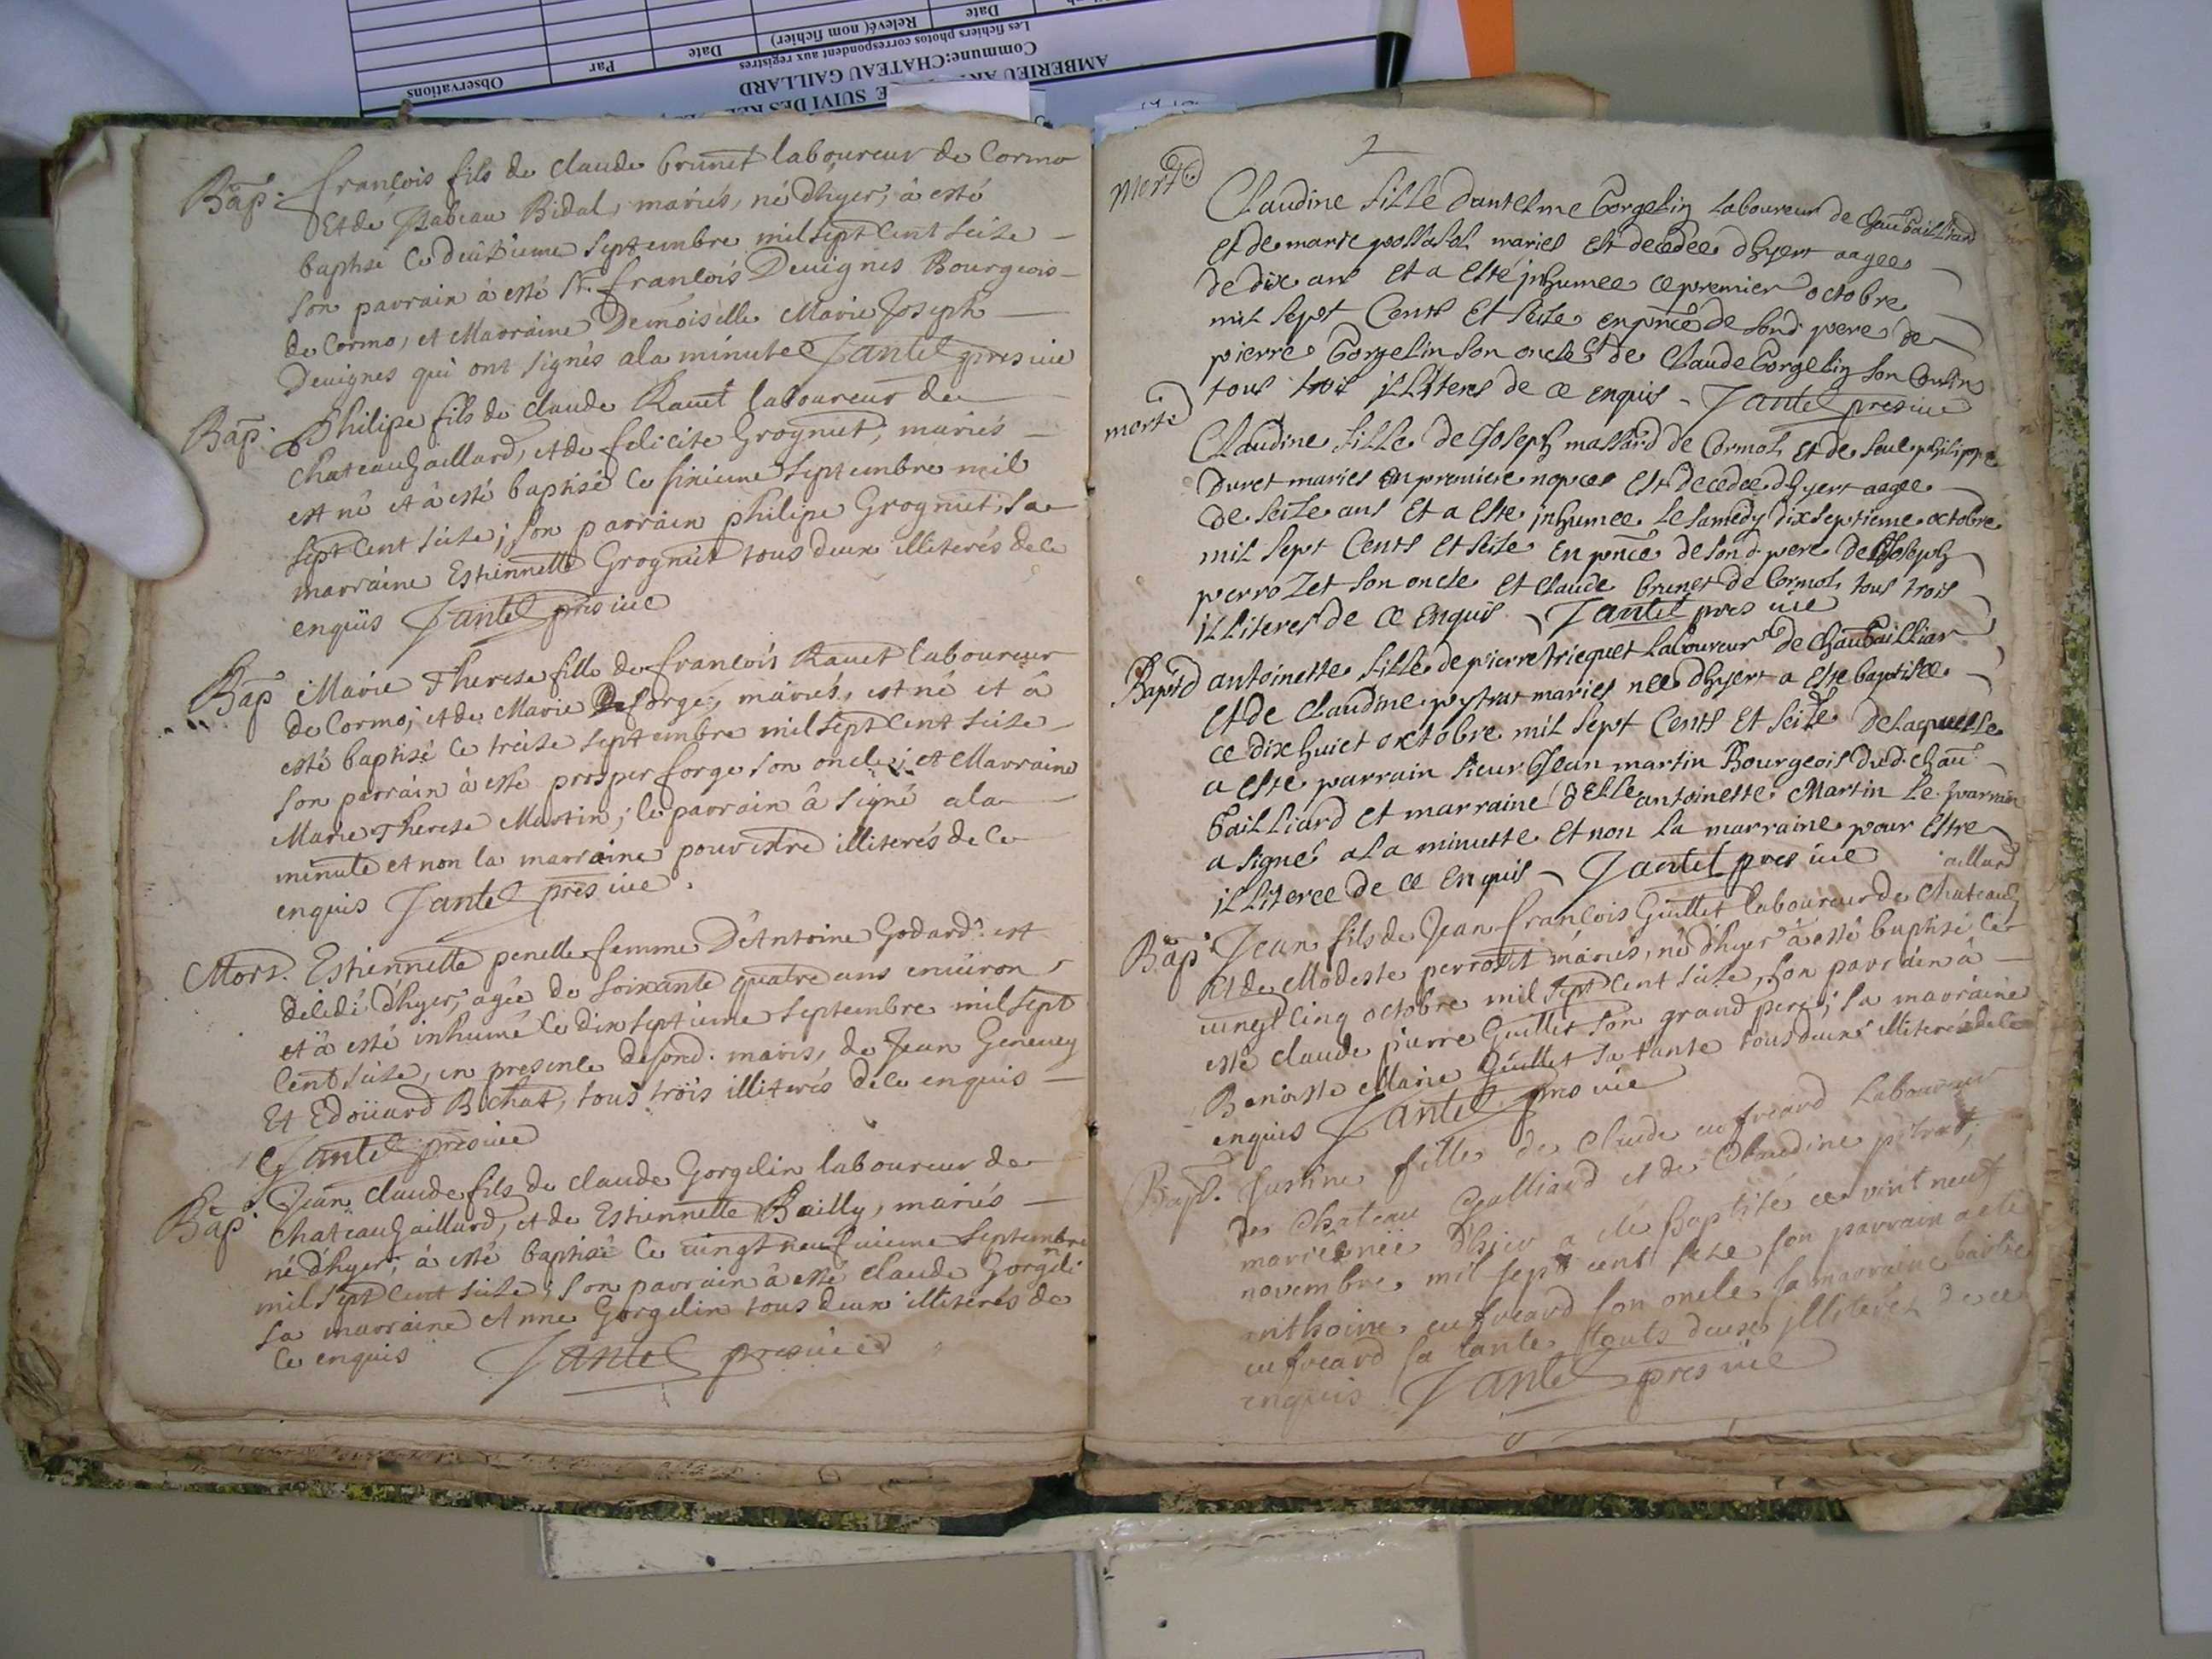 Observations
Par
Date
Relevé( nom fichier)
Date
Les fichiers photos correspondent aux registres
Commune:CHATEAU GAILLARD
AMBERIEU
E SUIVI DES
Bap. françois fils de claude brunet laboureur de Cormo
Et de Isabeau Bidal, mariés, né d'hyer, à esté
baptisé le deuxieme septembre mil sept cent seize
son parrain à esté Sr. françois Deuignes Bourgeois
de Cormo, et Marraine Demoiselle Marie Joseph
Deuignes qui ont signés ala minute Jantel pres uic
Bap. Philipe fils de claude Rauet laboureur de
chateaugaillard, et de felicite Grogniet, mariés
est né et à esté baptisé le sixieme septembre mil
sept cent seize; son parrain philipe Grogniet, sa
marraine Estiennette Grogniet tous deux illiterés de ce
enquis Jantel pres uic
Bap Marie Therese fille de françois Rauet laboureur
de Cormo; et de Marie Deforge, mariés, est né et à
esté baptisé le treize septembre mil sept cent seize
son parrain à esté prosper forge son oncle; et Marraine
Marie Therese Martin; le parrain à signé ala
minute et non la marraine pour estre illiterés de ce
enquis Jantel pres uic.
Mort. Estiennette penelle femme D'Antoine Godard est
decedé d'hyer, agée de soixante quatre ans enuiron,
et à esté inhumé le dix septieme septembre mil sept
cent seize, en presence de sond. maris, de Jean Geneuey
Et Edoüard Bichat, tous trois illiterés de ce enquis
Jantel pres uic
Bap. Jean claude fils de claude Gorgelin laboureur de
chateaugaillard, et de Estiennette Bailly, mariés
né d'hyer, à esté baptisé le uingt neufuieme septembre
mil sept cent seize; son parrain à esté claude Gorgelin
sa marraine Anne Gorgelin tous deux illiterés de
ce enquis Jantel pres uic
2
morte Claudine fille dantelme Gorgelin Laboureur de chaugailliard
et de marie possasol mariés est decedee dhyer aagee
de dix ans et a esté inhumee ce premier octobre
mil sept Cents et seize en pnce de sond. pere de
pierre Gorgelin son oncle et de Claude Gorgelin son Cousin
tous trois illiteres de ce enquis - Jantel pres uic
morte Claudine fille de Joseph massard de Cormoz et de feue philippe
Duret mariés en premiere nopces est decedee dhyer aagee
de seize ans et a esté inhumee le samedy dix septieme octobre
mil sept Cents et seize en pnce de son d. pere de Joseph
perrozet son oncle et claude brunet de Cormoz tous trois
illiteres de ce enquis Jantel pres uic
Bapt antoinette fille de pierre triequet Laboureur de chaugailliar
et de claudine peytrat mariés nee dhyer a este baptisee
ce dix huict octobre mil sept Cents et seize de laquelle
a este parrain sieur Jean martin Bourgeois dud. chau
gailliard et marraine delle antoinette Martin le parrain
a signé ala minutte et non la marraine pour estre
illiteree de ce enquis Jantel pres uic
Bap. Jean fils de Jean françois Guillet laboureur de chateaugaillard
Et de Modeste perrozet mariés, né d'hyer à esté baptisé le
uingt cinq octobre mil sept cent seize, son parrain à
esté claude pierre Guillet son grand pere; sa marraine
Benoiste Marie Guillet sa tante tous deux illiterés de ce
enquis Jantel pres uic
Bapt. Justine fille de Claude cufreard Laboureur
de Chateau Galliard et de Claudine petrat,
mariés née dhier a été Baptisé ce vint neuf
novembre, mil sept cent seze son parrain a eté
anthoine cufreard son oncle sa marraine
cufreard sa tante touts deux illiterés de ce
enquis Jantel pres uic